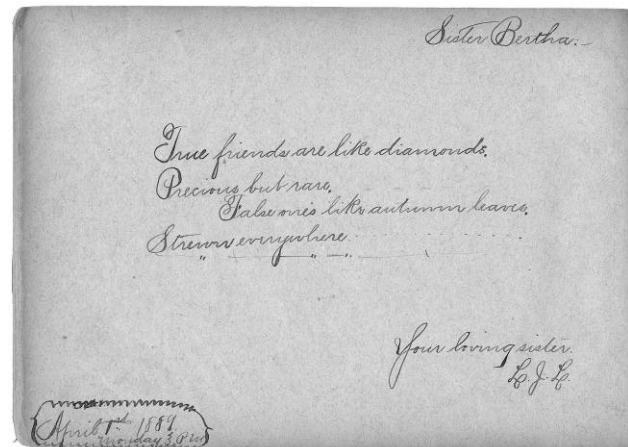 Sister Bertha.
True friends are like diamonds.
Precious but rare.
False one's like autumn leaves.
Strewn everywhere
" " "
Your loving sister.
L. J. L.
April 1st 1889
Monday 3 P.M.